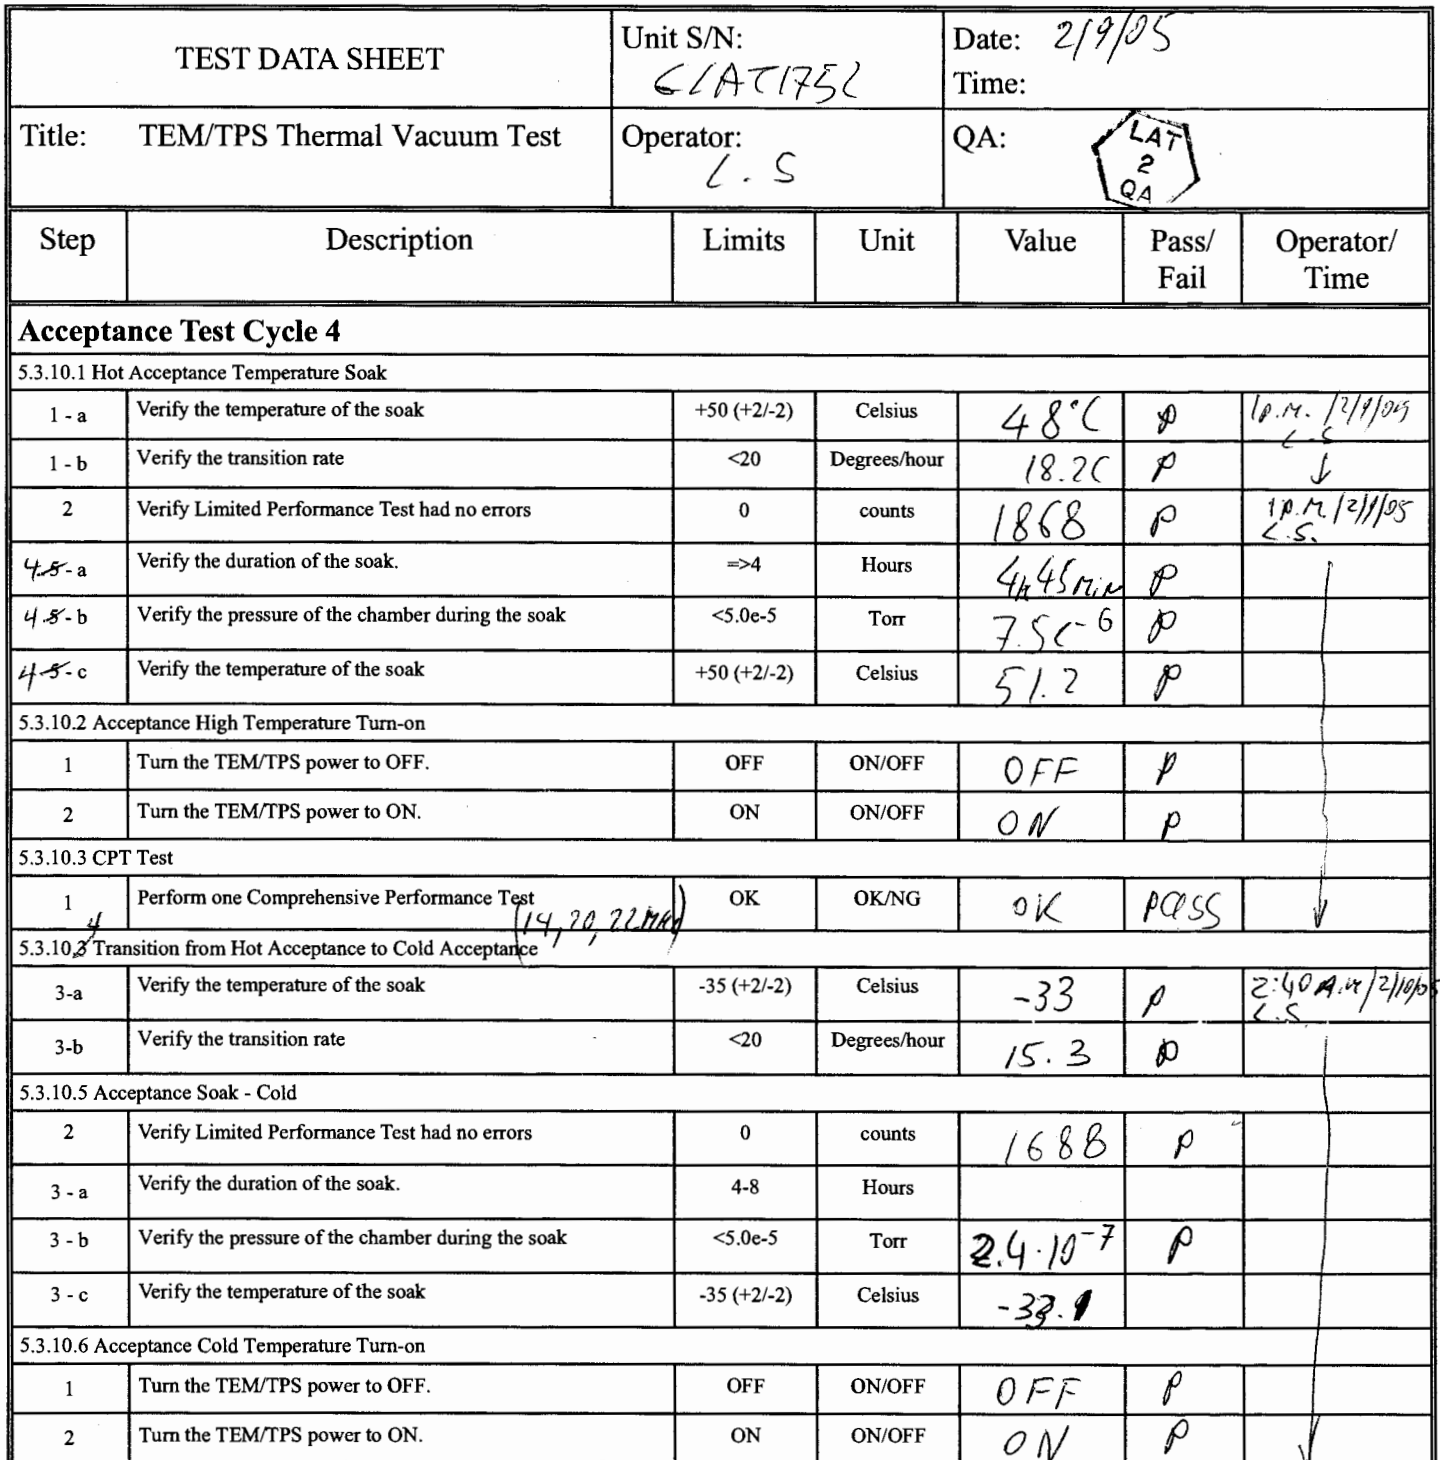 TEST DATA SHEET
Unit S/N:
GLAT1752
Date: 2/9/05
Time:
Title: TEM/TPS Thermal Vacuum Test
Operator:
L.S
QA:
LAT
2
QA
Step Description Limits Unit Value Pass/ Fail Operator/ Time
Acceptance Test Cycle 4
5.3.10.1 Hot Acceptance Temperature Soak
1 - a Verify the temperature of the soak +50 (+2/-2) Celsius 48°C P 1 p.m. /2/9/05
L.S
1 - b Verify the transition rate <20 Degrees/hour 18.2C P
2 Verify Limited Performance Test had no errors 0 counts 1868 P 1 p.m. /2/9/05
L.S.
4 - a Verify the duration of the soak. =>4 Hours 4h 45min P
4 - b Verify the pressure of the chamber during the soak <5.0e-5 Torr 7.5e-6 P
4 - c Verify the temperature of the soak +50 (+2/-2) Celsius 51.2 P
5.3.10.2 Acceptance High Temperature Turn-on
1 Turn the TEM/TPS power to OFF. OFF ON/OFF OFF P
2 Turn the TEM/TPS power to ON. ON ON/OFF ON P
5.3.10.3 CPT Test
1 Perform one Comprehensive Performance Test OK OK/NG OK Pass
(14, 20, 22 MHz)
5.3.10.4 Transition from Hot Acceptance to Cold Acceptance
3-a Verify the temperature of the soak -35 (+2/-2) Celsius -33 P 2:40 A.M/2/10/05
L.S
3-b Verify the transition rate <20 Degrees/hour 15.3 P
5.3.10.5 Acceptance Soak - Cold
2 Verify Limited Performance Test had no errors 0 counts 1688 P
3 - a Verify the duration of the soak. 4-8 Hours
3 - b Verify the pressure of the chamber during the soak <5.0e-5 Torr 2.4·10-7 P
3 - c Verify the temperature of the soak -35 (+2/-2) Celsius -33.1
5.3.10.6 Acceptance Cold Temperature Turn-on
1 Turn the TEM/TPS power to OFF. OFF ON/OFF OFF P
2 Turn the TEM/TPS power to ON. ON ON/OFF ON P